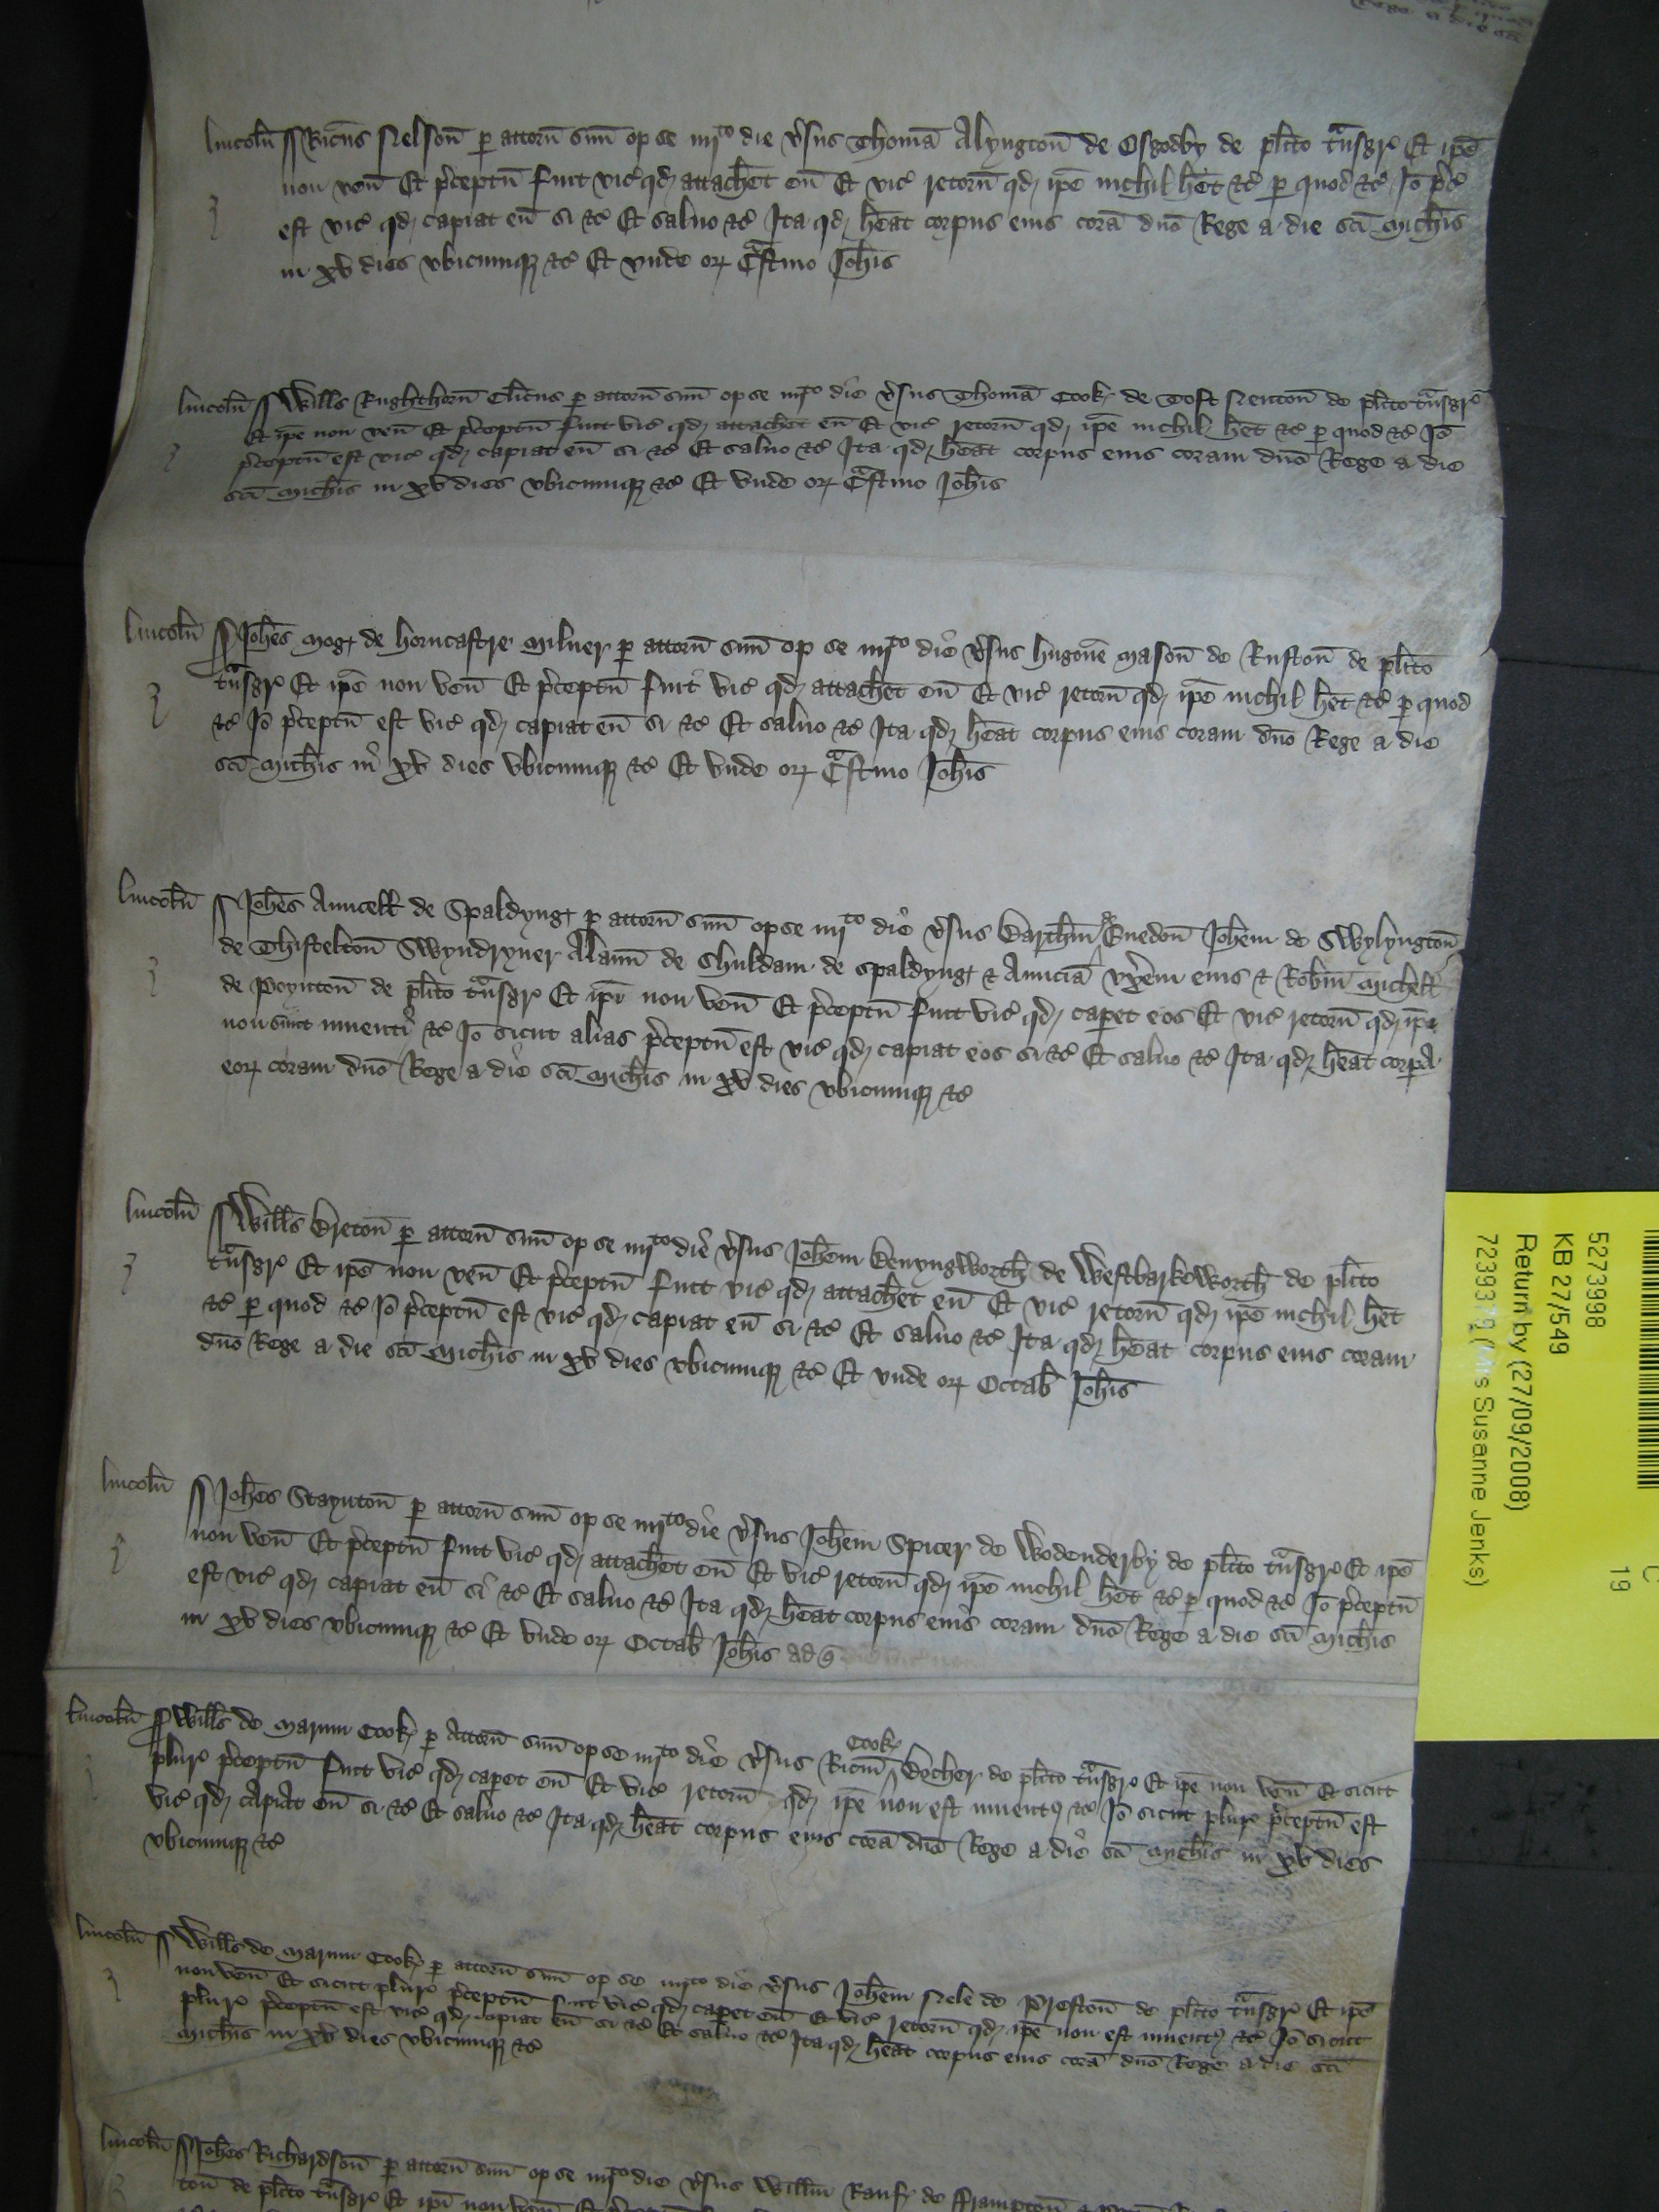 lincoln̄ Ricūs Nelson̄ p attorn̄ suū op se iiijto die v̓sus Thomā Alyngton̄ de Osgodby de pl̄ito tͣnsgr̓ Et ip̄e
non ven̄ Et p̓ceptū fuit vic̓ qd̓ attachet eū Et vic̓ retorn̄ qd̓ ip̄e nichil h̄et &c̓ p quod &c̓ Iō p̓c̓
est vic̓ qd̓ capiat eū si &c̓ Et saluo &c̓ Ita qd̓ h̄eat corpus eius corā dn̄o Rege a die sc̄i Mich̄is
in xv dies vbicumqꝫ &c̓ Et vnde orꝝ Cͣstino Joh̄is
lincoln̄ Will̄s Rughthorn̄ Cl̄icus p attorn̄ suū op se iiijto die v̓sus Thomā Cook̓ de Toft Neuton̄ de pl̄ito tͣnsgr̓
Et ip̄e non ven̄ Et p̓ceptū fuit vic̓ qd̓ attachet eū Et vic̓ retorn̄ qd̓ ip̄e nichil h̄et &c̓ p quod &c̓ Iō
p̓ceptū est vic̓ qd̓ capiat eū si &c̓ Et saluo &c̓ Ita qd̓ h̄eat corpus eius coram dn̄o Rege a die
sc̄i Mich̄is in xv dies vbicumqꝫ &c̓ Et vnde orꝝ Cͣstino Joh̄is
lincoln̄ Joh̄es Mog̓ de Horncastre Milner p attorn̄ suū op se iiijto die v̓sus Hugonē Mason̄ de Ruston̄ de pl̄ito
tͣnsgr̓ Et ip̄e non ven̄ Et p̓ceptū fuit vic̓ qd̓ attachet eū Et vic̓ retorn̄ qd̓ ip̄e nichil h̄et &c̓ p quod
&c̓ Iō p̓ceptū est vic̓ qd̓ capiat eū si &c̓ Et saluo &c̓ Ita qd̓ h̄eat corpus eius coram dn̄o Rege a die
sc̄i Mich̄is in xv dies vbicumqꝫ &c̓ Et vnde orꝝ Cͣstino Joh̄is
lincoln̄ Joh̄es Auncell̄ de Spaldyng̓ p attorn̄ suū op se iiijto die v̓sus Barth̄m de Enedon̄ Joh̄em de Swylyngton̄
de Thistelton̄ Swyndryuer Alanū de Shuldam de Spaldyng̓ & Amiciā vx̓em eius & Rob̄m Michell̄
de Poynton̄ de pl̄ito tͣnsgr̓ Et ip̄i non ven̄ Et p̓ceptū fuit vic̓ qd̓ capet eos Et vic̓ retorn̄ qd̓ ip̄i
non sunt inuenti &c̓ Iō sicut alias p̓ceptū est vic̓ qd̓ capiat eos si &c̓ Et saluo &c̓ Ita qd̓ h̄eat corpa
eorꝝ coram dn̄o Rege a die sc̄i Mich̄is in xv dies vbicumqꝫ &c̓
lincoln̄ Will̄s Breton̄ p attorn̄ suū op se iiijto die v̓sus Joh̄em Benyngworth̄ de Westbarkeworth̄ de pl̄ito
tͣnsgr̓ Et ip̄e non ven̄ Et p̓ceptū fuit vic̓ qd̓ attachet eū Et vic̓ retorn̄ qd̓ ip̄e nichil h̄et
&c̓ p quod &c̓ Iō p̓ceptū est vic̓ qd̓ capiat eū si &c̓ Et saluo &c̓ Ita qd̓ h̄eat corpus eius coram
dn̄o Rege a die sc̄i Mich̄is in xv dies vbicumqꝫ &c̓ Et vnde orꝝ Octab̄ Joh̄is
lincoln̄ Joh̄es Staynton̄ p attorn̄ suū op se iiijto die v̓sus Joh̄em Spicer de Wodenderby de pl̄ito tͣnsgr̓ Et ip̄e
non ven̄ Et p̓ceptū fuit vic̓ qd̓ attachet eū Et vic̓ retorn̄ qd̓ ip̄e nichil h̄et &c̓ p quod &c̓ Iō p̓ceptū
est vic̓ qd̓ capiat eū si &c̓ Et saluo &c̓ Ita qd̓ h̄eat corpus eius coram dn̄o Rege a die sc̄i Mich̄is
in xv dies vbicumqꝫ &c̓ Et vnde orꝝ Octab̄ Joh̄is
lincoln̄ Will̄s de Marum Cook̓ p attorn̄ suū op se iiijto die v̓sus Ricm̄ Cook̓ Bocher de pl̄ito tͣnsgr̓ Et ip̄e non ven̄ Et sicut
plur̓ p̓ceptū fuit vic̓ qd̓ capet eū Et vic̓ retorn̄ qd̓ ip̄e non est inuentꝰ &c̓ Iō sicut plur̓ p̓ceptū est
vic̓ qd̓ capiat eū si &c̓ Et saluo &c̓ Ita qd̓ h̄eat corpus eius corā dn̄o Rege a die sc̄i Mich̄is in xv dies
vbicumqꝫ &c̓
lincoln̄ Will̄s de Marum Cook̓ p attorn̄ suū op se iiijto die v̓sus Joh̄em Nele de Preston̄ de pl̄ito tͣnsgr̓ Et ip̄e
non ven̄ Et sicut plur̓ p̓ceptū fuit vic̓ qd̓ capet eū Et vic̓ retorn̄ qd̓ ip̄e non est inuentꝰ &c̓ Iō sicut
plur̓ p̓ceptū est vic̓ qd̓ capiat eū si &c̓ Et saluo &c̓ Ita qd̓ h̄eat corpus eius corā dn̄o Rege a die sc̄i
Mich̄is in xv dies vbicumqꝫ &c̓
lincoln̄ Joh̄es Richardson̄ p attorn̄ suū op se iiijto die v̓sus Willm̄ Rauf̓ de Frampton̄
ton̄ de pl̄ito tͣnsgr̓ Et ip̄i non ven̄
5273998
KB 27/549
Return by (27/09/2008)
7239379 (Mrs Susanne Jenks)
19